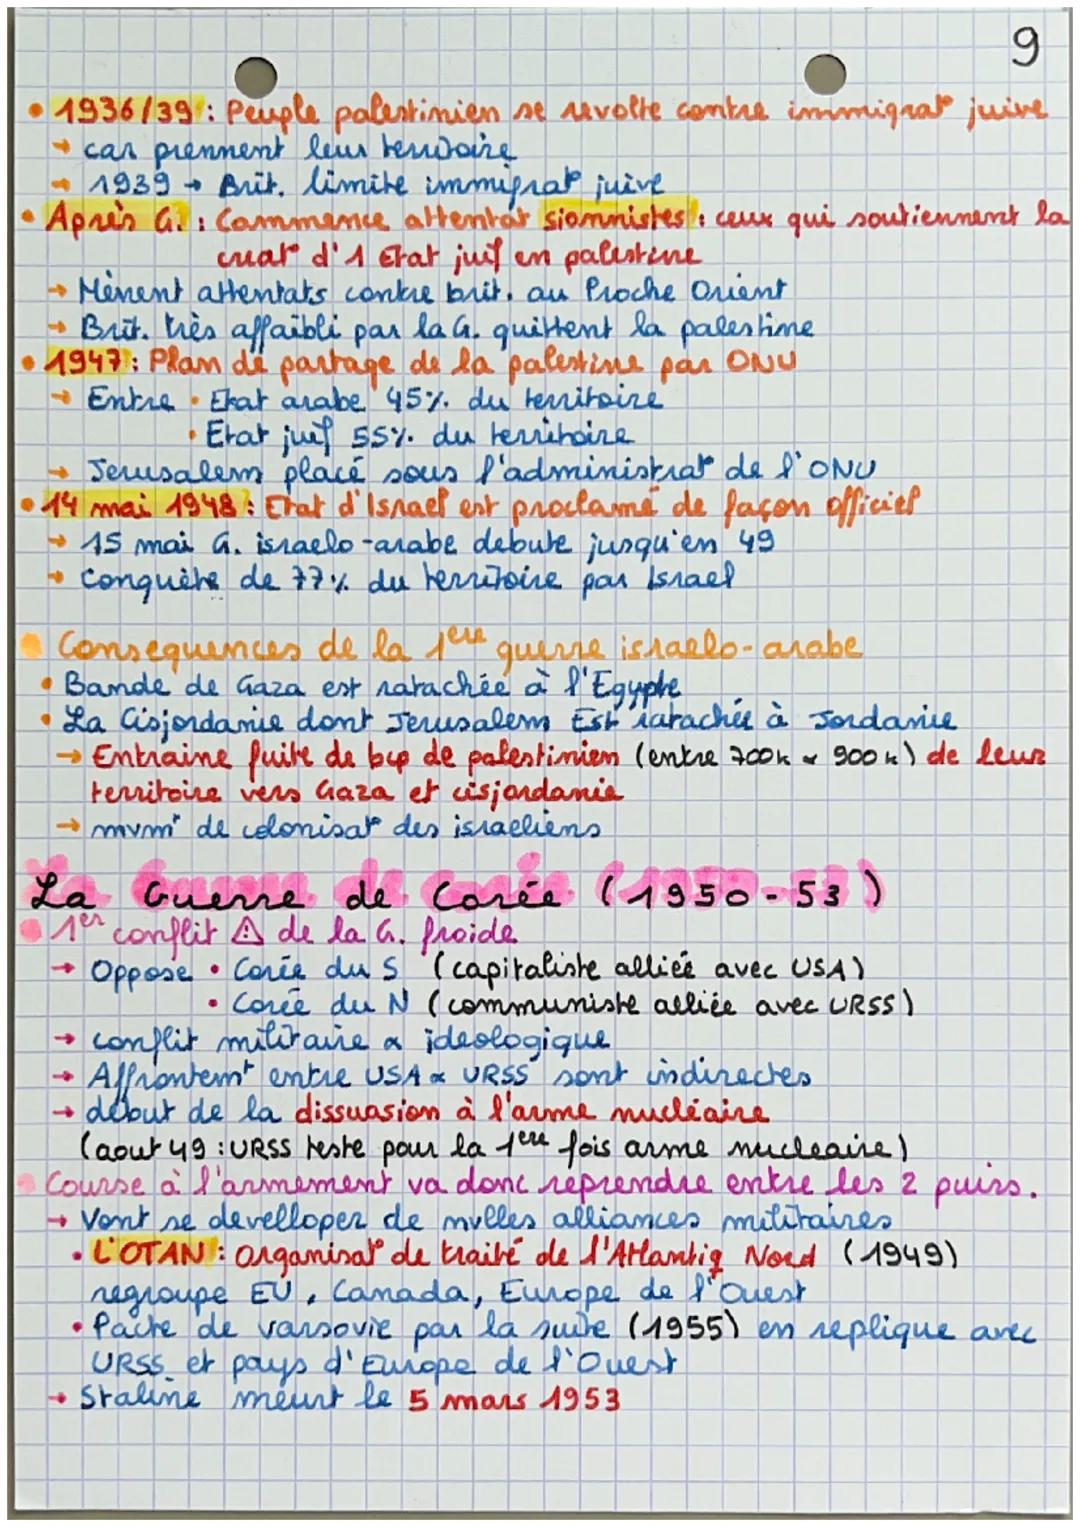 9
• 1936/39 : Peuple palestinien se revolte contre immigrat° juive
→ car prennent leur territoire
→ 1939 → Brit. limite immigrat° juive
• Après G. : Commence attentat sionnistes : ceux qui soutiennent la
creat° d'1 Etat juif en palestine
→ Mènent attentats contre brit. au Proche Orient
→ Brit. très affaibli par la G. quittent la palestine
• 1947 : Plan de partage de la palestine par ONU
→ Entre • Etat arabe 45% du territoire
• Etat juif 55% du territoire
→ Jerusalem placé sous l'administrat° de l'ONU
• 14 mai 1948 : Etat d'Israel est proclamé de façon officiel
→ 15 mai G. israelo-arabe debute jusqu'en 49
→ Conquête de 77% du territoire par Israel
• Consequences de la 1ere guerre israelo-arabe
• Bande de Gaza est ratachée à l'Egypte
• La Cisjordanie dont Jerusalem Est ratachée à Jordanie
→ Entraine fuite de bcp de palestinien (entre 700k & 900k) de leur
territoire vers Gaza et cisjordanie
→ mvmt de colonisat° des israeliens
La Guerre de Corée (1950-53)
• 1er conflit ⚠ de la G. froide
→ Oppose • Corée du S (capitaliste alliée avec USA)
• Corée du N (communiste alliée avec URSS)
→ conflit militaire & ideologique
→ Affrontemt entre USA & URSS sont indirectes
→ debut de la dissuasion à l'arme nucléaire
(aout 49 : URSS teste pour la 1ere fois arme nucleaire)
• Course à l'armement va donc reprendre entre les 2 puiss.
→ Vont se develloper de nvlles alliances militaires
• L'OTAN : Organisat° de traité de l'Atlantiq Nord (1949)
regroupe EU, Canada, Europe de l'Ouest
• Pacte de varsovie par la suite (1955) en replique avec
URSS et pays d'Europe de l'Ouest
→ Staline meurt le 5 mars 1953